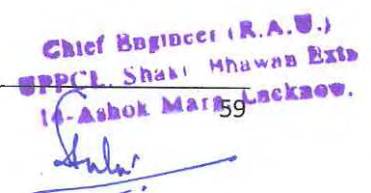 Chief Engineer (R.A.U.)
UPPCL, Shakti Bhawan Extn
14-Ashok Marg, Lucknow.
59